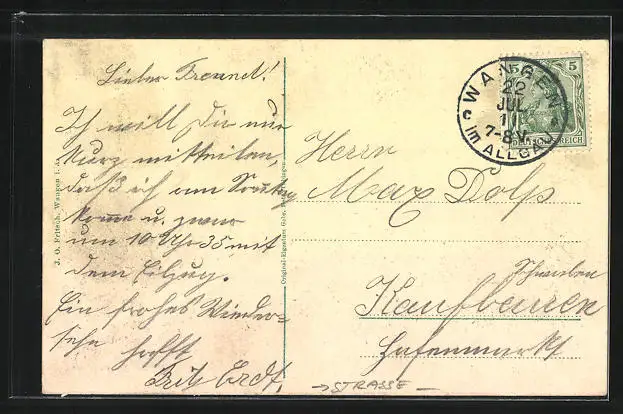 Lieber Freund!
Ich will Dir nur
kurz mitteilen,
daß ich am Sonntag
komme u. zwar
um 10 Uhr 35 mit
dem Eilzug.
Ein frohes Wieder=
sehn hofft
Fritz Erdt.
J. O. Fritsch, Wangen i. A.
Original-Eigentum Gebr.
WANGEN
22
JUL
1
7-8 V.
im ALLGÄU
5 5
DEUTSCHES REICH
Herrn
Max Dolp
Schwaben
Kaufbeuren
Hafenmarkt
→ STRASSE –